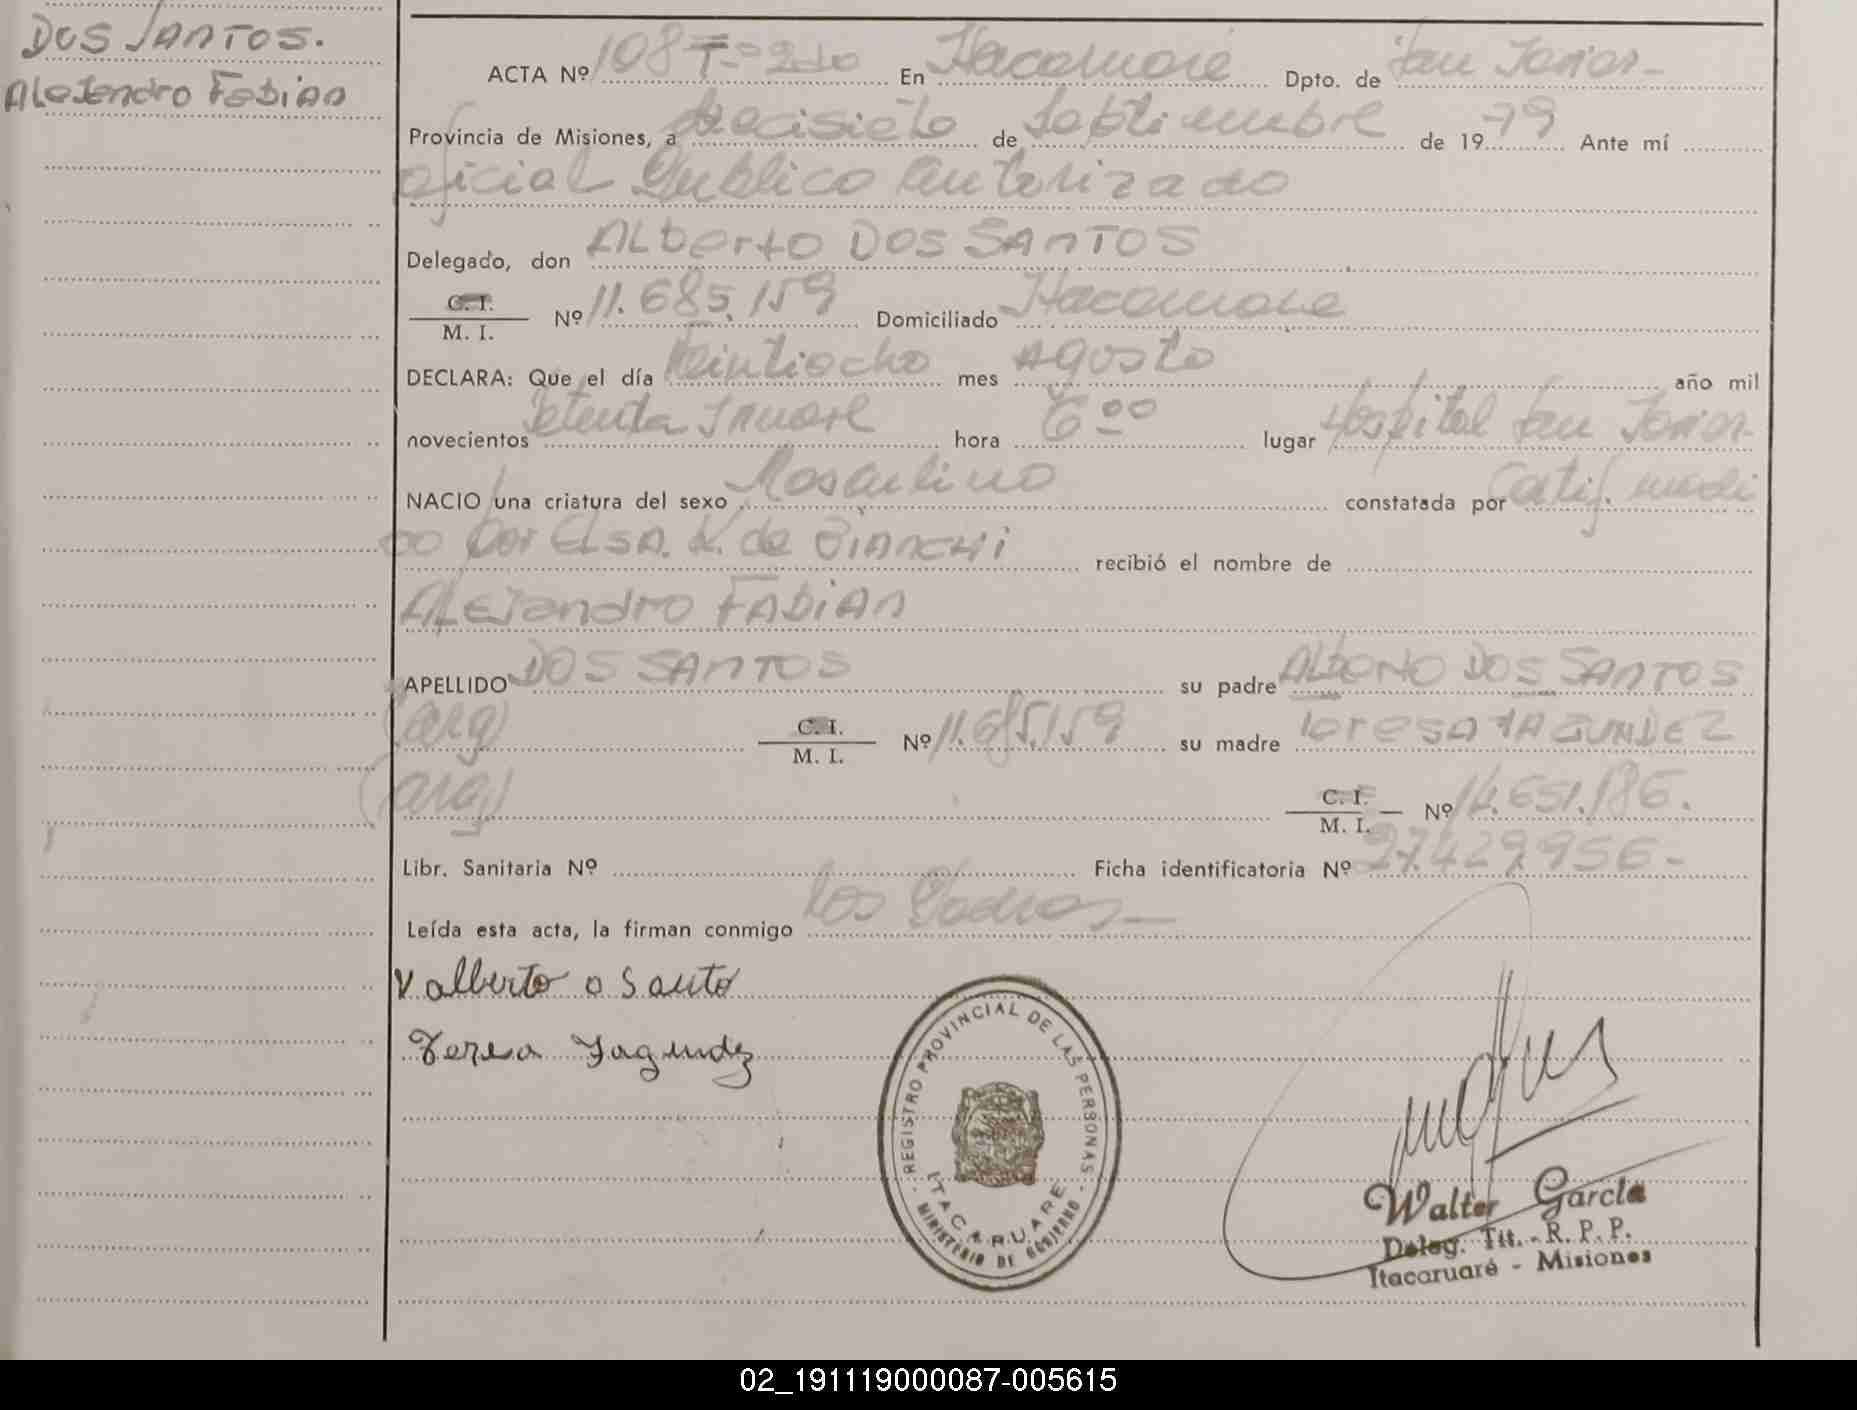 DOS SANTOS.
Alejandro Fabian
ACTA Nº 108 En Itacaruaré Dpto. de San Javier-
Provincia de Misiones, a diecisiete de Septiembre de 1979 Ante mí
oficial Publico autorizado
Delegado, don Alberto DOS SANTOS
C. I.
M. I. Nº 11.685.159 Domiciliado Itacaruare
DECLARA: Que el día Veintiocho mes Agosto año mil
novecientos Setenta y nueve hora 6 00 lugar Hospital San Javier-
NACIO una criatura del sexo Masculino constatada por Certif. medi
co por Elsa. K. de Bianchi recibió el nombre de
Alejandro Fabian
APELLIDO DOS SANTOS su padre Alberto DOS SANTOS
(arg) C. I. M. I. Nº 11.685.159 su madre Teresa FAGUNDEZ
(arg) C. I. M. I. Nº 14.651.186.
Libr. Sanitaria Nº Ficha identificatoria Nº 27.429.956-
Leída esta acta, la firman conmigo los Padres-
alberto o Santo
Teresa Fagundez
REGISTRO PROVINCIAL DE LAS PERSONAS
ITACARUARE
MINISTERIO DE GOBIERNO
Walter García
Deleg. Tit. - R. P. P.
Itacaruaré - Misiones
02_191119000087-005615